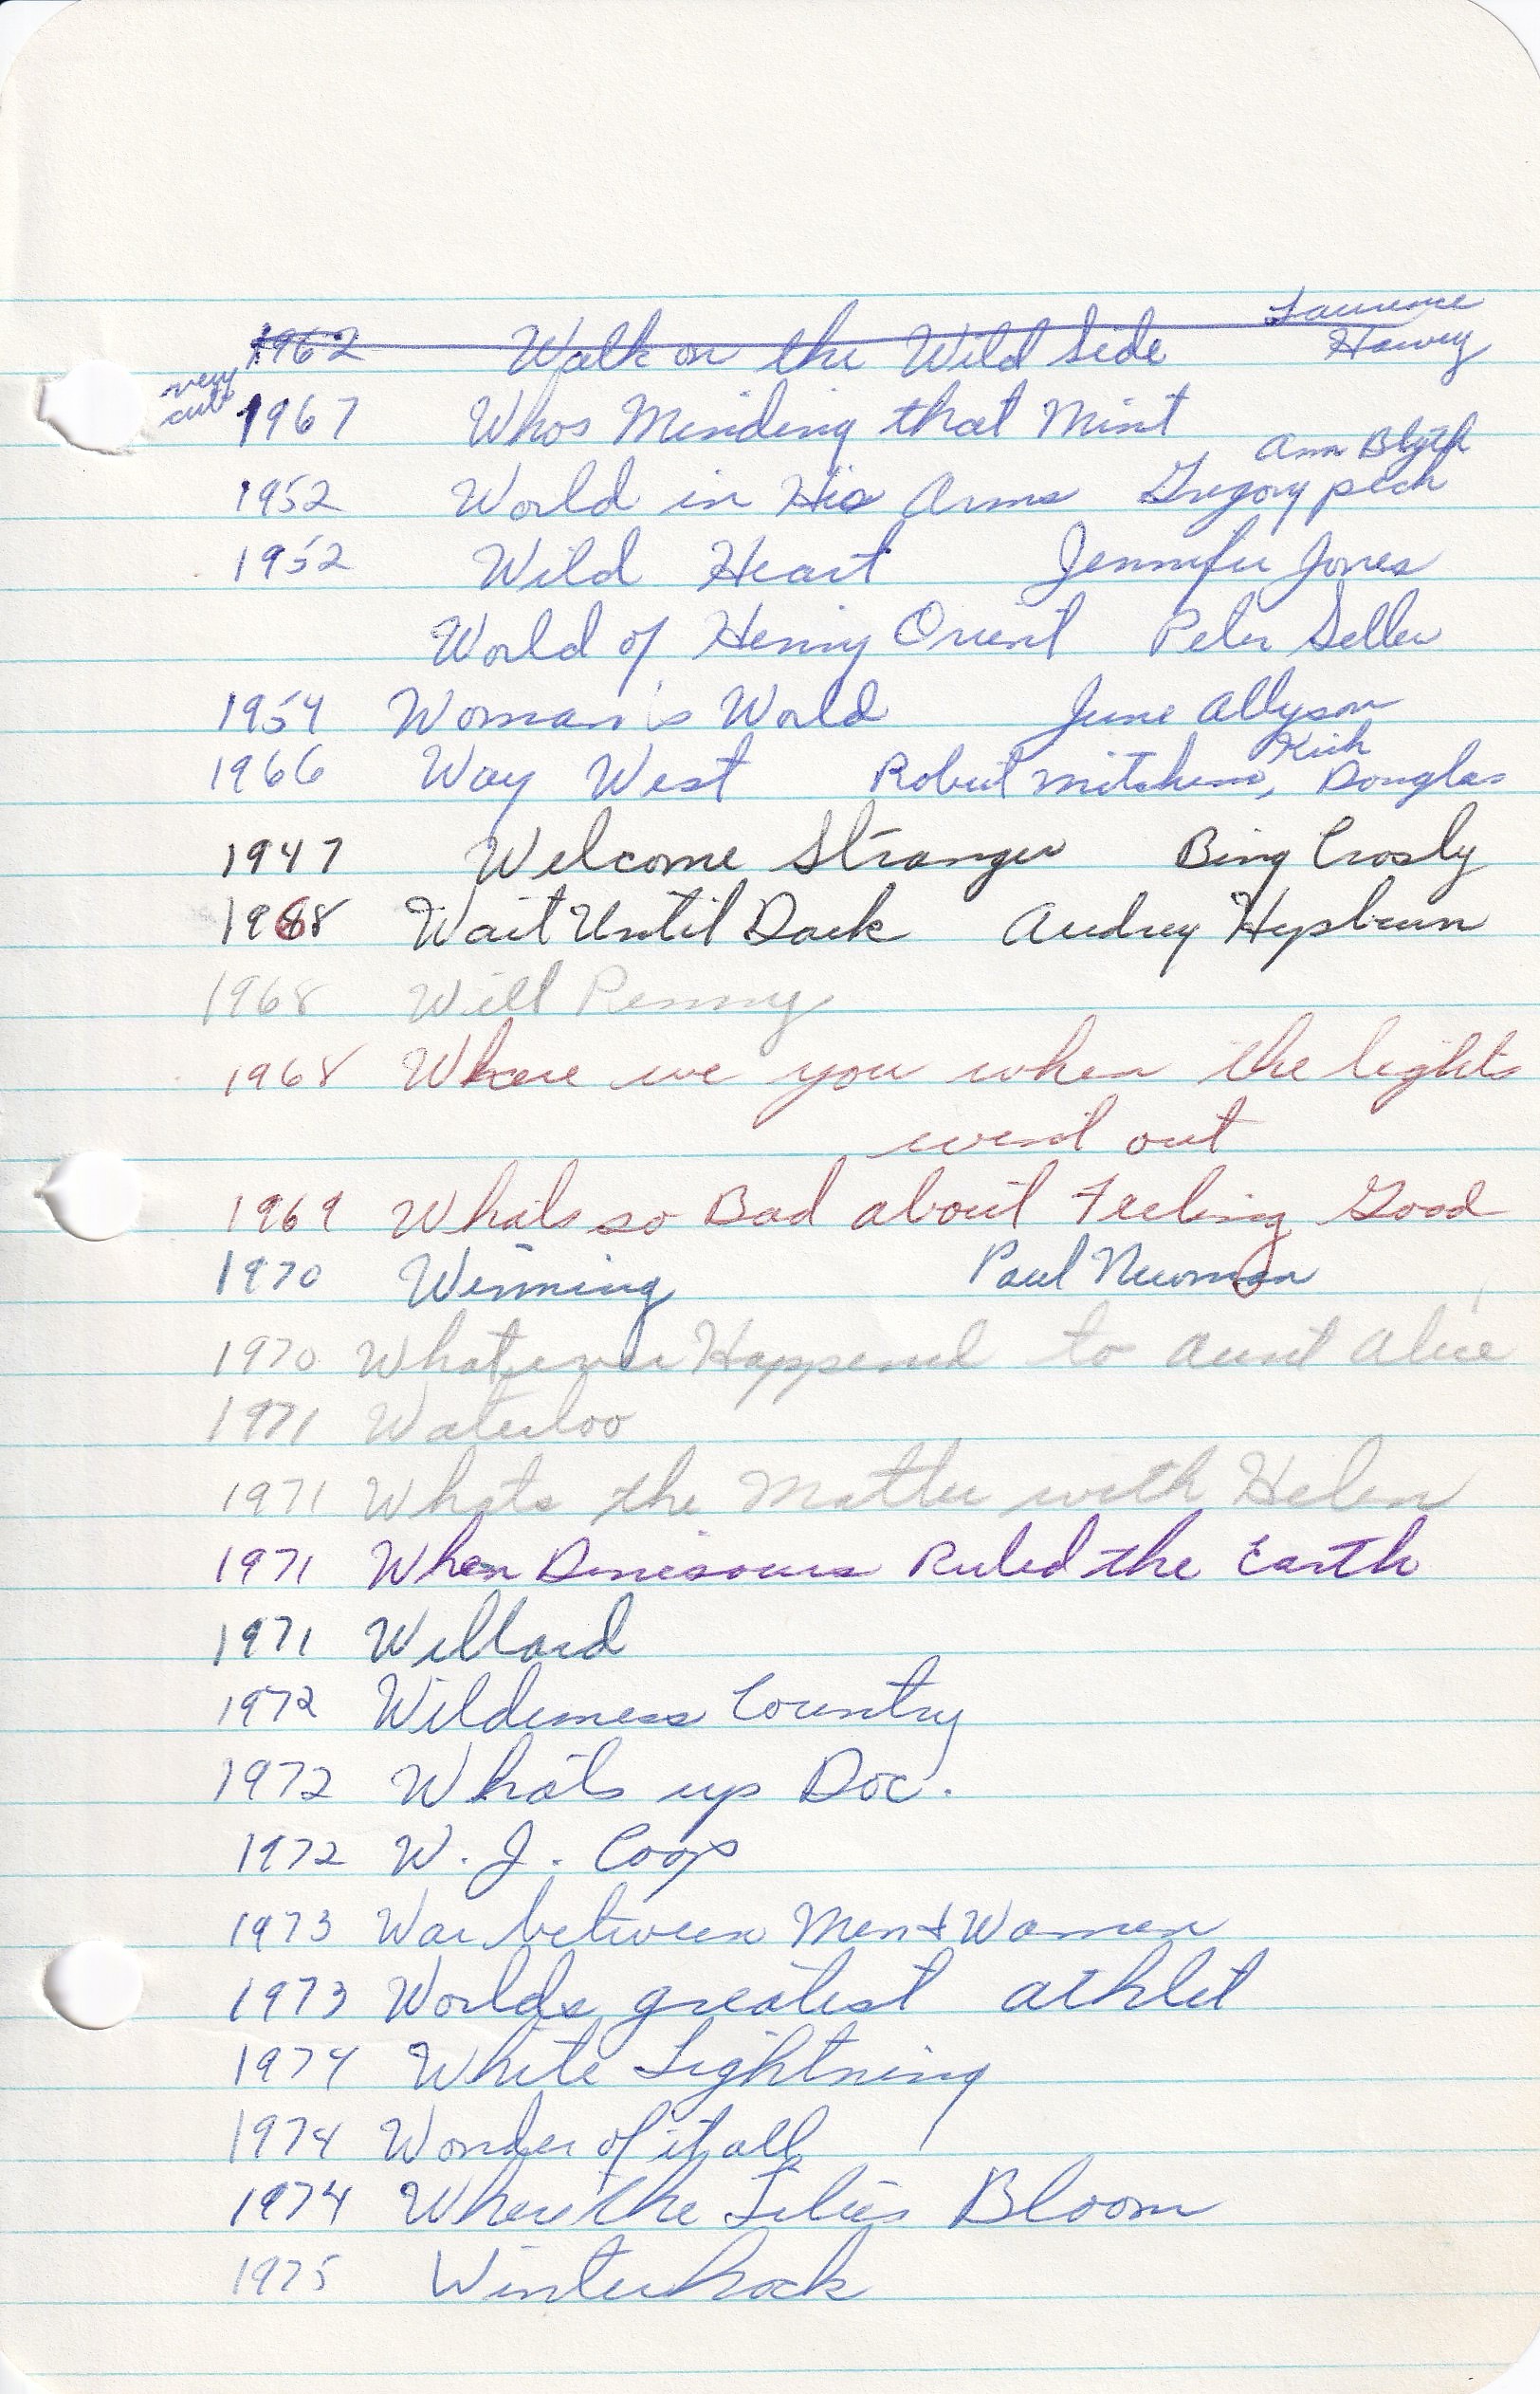 1962 Walk on the Wild Side Laurence Harvey
very cute
1967 Whos Minding that Mint
1952 World in His Arms Gregory peck Ann Blyth
1952 Wild Heart Jennifer Jones
World of Henry Orient Peter Seller
1954 Woman's World June Allyson
1966 Way West Robert Mitchum, Kirk Douglas
1947 Welcome Stranger Bing Crosby
1968 Wait Until Dark Audrey Hepburn
1968 Will Penny
1968 Where we you when the lights
went out
1969 What's so Bad about Feeling Good
1970 Winning Paul Newman
1970 Whatever Happened to Aunt Alice
1971 Waterloo
1971 Whats the Matter with Helen
1971 When Dinesours Ruled the Earth
1971 Willard
1972 Wilderness Country
1972 What's up Doc.
1972 W. J. Coop
1973 War between Men & Women
1973 Worlds greatest athlet
1974 White Lightning
1974 Wonder of it all
1974 Where the Lilies Bloom
1975 Winterhawk